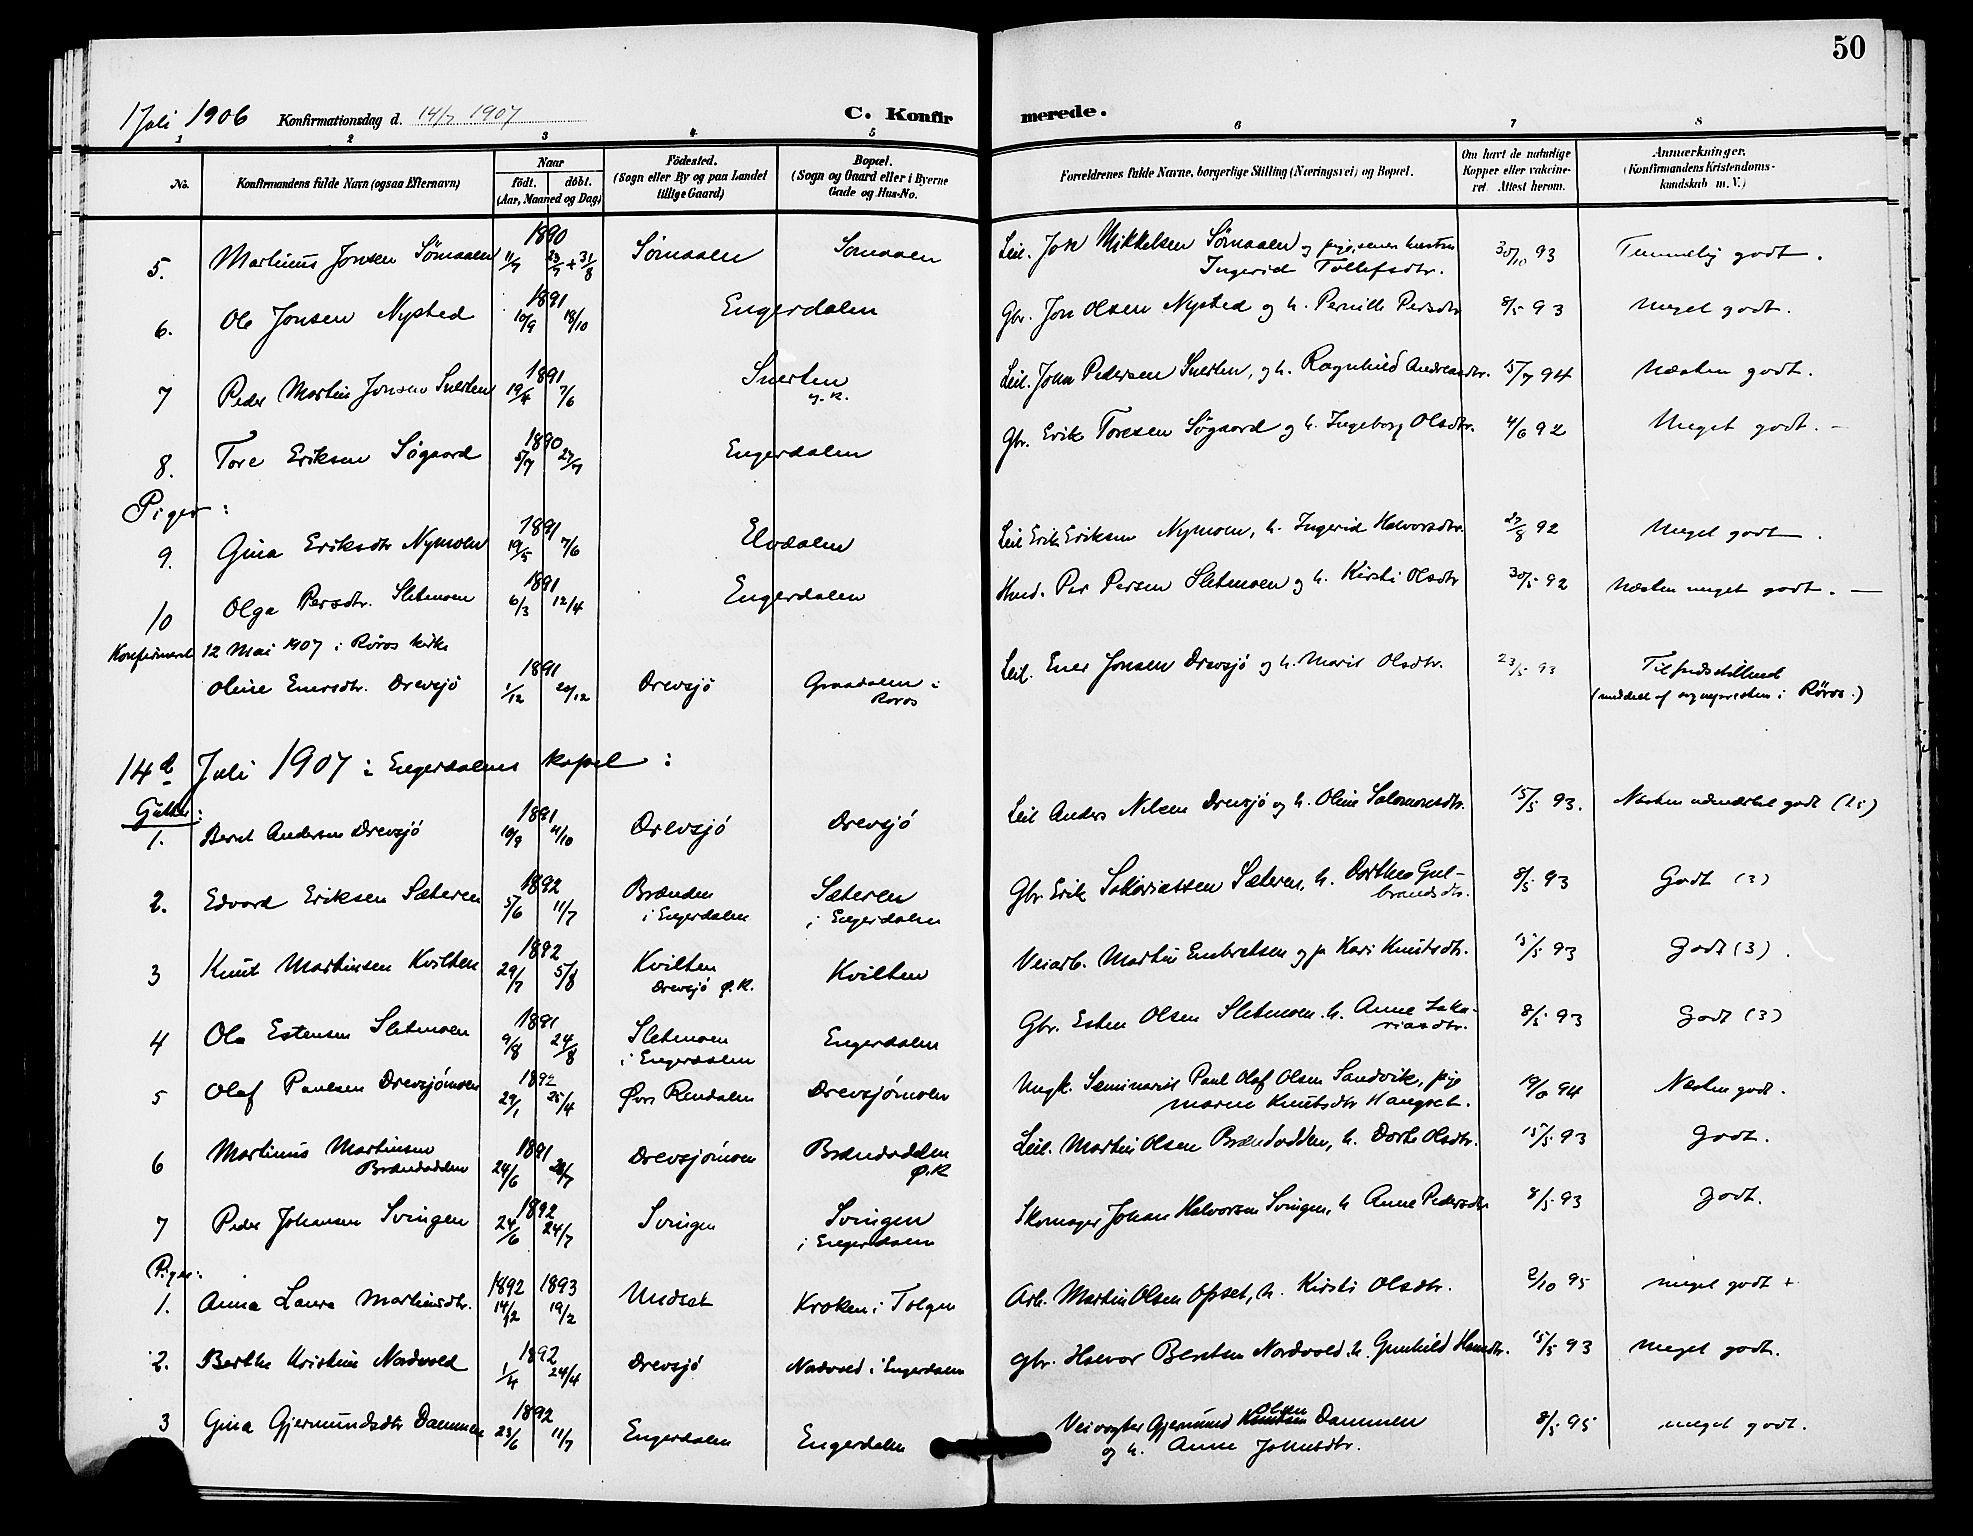 50
1 Juli 1906 Konfirmationsdag d. 14/7 1907 C. Konfirmerede.
1 2 3 4 5 6 7 8
No. Konfirmandens fulde Navn (ogsaa Efternavn) Naar født. døbt. (Aar, Maaned og Dag) Fødested. (Sogn eller By og paa Landet tillige Gaard) Bopæl. (Sogn og Gaard eller i Byerne Gade og Hus-No. Forældrenes fulde Navne, borgerlige Stilling (Næringsvei) og Bopæl. Om havt de naturlige Kopper eller vakcineret. Attest herom. Anmærkninger, (Konfirmandens Kristendomskundskab m. V.)
1890
5. Martinus Jonsen Sømaalen 11/7 23/7 + 31/8 Sømaalen Sømaalen Leil. Jon Mikkelsen Sømaalen og pige, senere hustru
Ingerid Tollefsdtr. 30/10 93 Temmelig godt.
1891
6. Ole Jonsen Nysted 10/9 18/10 Engerdalen Gbr. Jon Olsen Nysted og h. Pernille Persdtr 8/5 93 Meget godt.
1891
7 Peder Martin Jonsen Snerten 19/4 7/6 Snerten Leil. John Pedersen Snerten, og h. Ragnhild Andreasdtr. 5/7 94 Næsten godt.
1890
8. Tore Eriksen Søgaard 5/7 27/7 Engerdalen Gbr. Erik Toresen Søgaard og h. Ingeborg Olsdtr. 4/6 92 Meget godt. -
Piger:
1891
9. Gina Eriksdtr Nymoen 19/5 7/6 Elvdalen Leil Erik Eriksen Nymoen, h. Ingerid Halvorsdtr. 27/8 92 Meget godt.
1891
10 Olga Persdtr. Sletmoen 6/3 12/4 Engerdalen Husd. Per Persen Sletmoen og h. Kirsti Olsdtr 30/5 92 Næsten meget godt. —
Konfirmeret 12 Mai 1907 i Røros kirke
1891
Oline Enersdtr. Drevsjø 1/12 20/12 Drevsjø Gaadalen i
Røros Leil. Ener Jonsen Drevsjø og h. Marit Olsdtr. 23/5 93 Tilfredsstillende
(meddelt af sognepresten i Røros.)
14d Juli 1907 i Engerdalens kapel:
Gutter:
1891
1. Bernt Andersen Drevsjø 10/9 4/10 Drevsjø Drevsjø Leil Anders Nilsen Drevsjø og h. Oline Salomonsdtr. 15/5 93. Næsten udmærket godt (1,5)
1892
2. Edvard Eriksen Sæteren 5/6 11/7 Brænden
i Engerdalen Sæteren
i Engerdalen Gbr. Erik Sakariassen Sæteren, h. Dorthea Gulbrandsdtr. 8/5 93 Godt (3)
1892
3 Knut Martinsen Kvilten 29/7 5/8 Kvilten
Drevsjø Ø.R. Kvilten Veiarb. Martin Embretsen og p Kari Knutsdtr. 15/5 93 Godt (3).
1891
4 Ole Estensen Sletmoen 9/8 24/8 Sletmoen
i Engerdalen Engerdalen Gbr. Esten Olsen Sletmoen. h. Anne Zakariasdtr. 8/5 93 Godt (3)
1892
5 Olaf Paulsen Drevsjømoen 29/1 25/4 Øvre Rendalen Drevsjømoen Ungk. Seminarist Paul Olaf Olsen Sandvik, pige
Maren Knutsdtr Hangset. 94 Næsten godt.
1891
6 Martinus Martinsen
Brændodden 24/6 Drevsjømoen Brændodden
Ø.R Leil. Martin Olsen Brændodden, h. Dorte Olsdtr. 15/5 93 Godt.
1892
7 Peder Johansen Svingen 24/6 24/7 Svingen Svingen
i Engerdalen Skomager Johan Halvorsen Svingen, h Anne Pedersdtr 8/5 93 Godt.
Piger:
1892 1893
1. Anna Laura Martinsdtr. 14/12 19/2 Undset Kroken i Tolgen Arb. Martin Olsen Opset, h. Kirsti Olsdtr. 2/10 95 meget godt +
1892
2. Berthe Kristine Nordvold 1/4 24/4 Drevsjø Nordvold i Engerdalen Gbr. Halvor Berntsen Nordvold. h. Gunhild Hansdtr. 15/5 93 Meget godt.
1892
3 Gina Gjermundsdtr Dammen 23/6 11/7 Engerdalen Engerdalen Veivogter Gjermund Olsen Dammen
og h. Anne Johnsdtr. 8/5 95 meget godt.